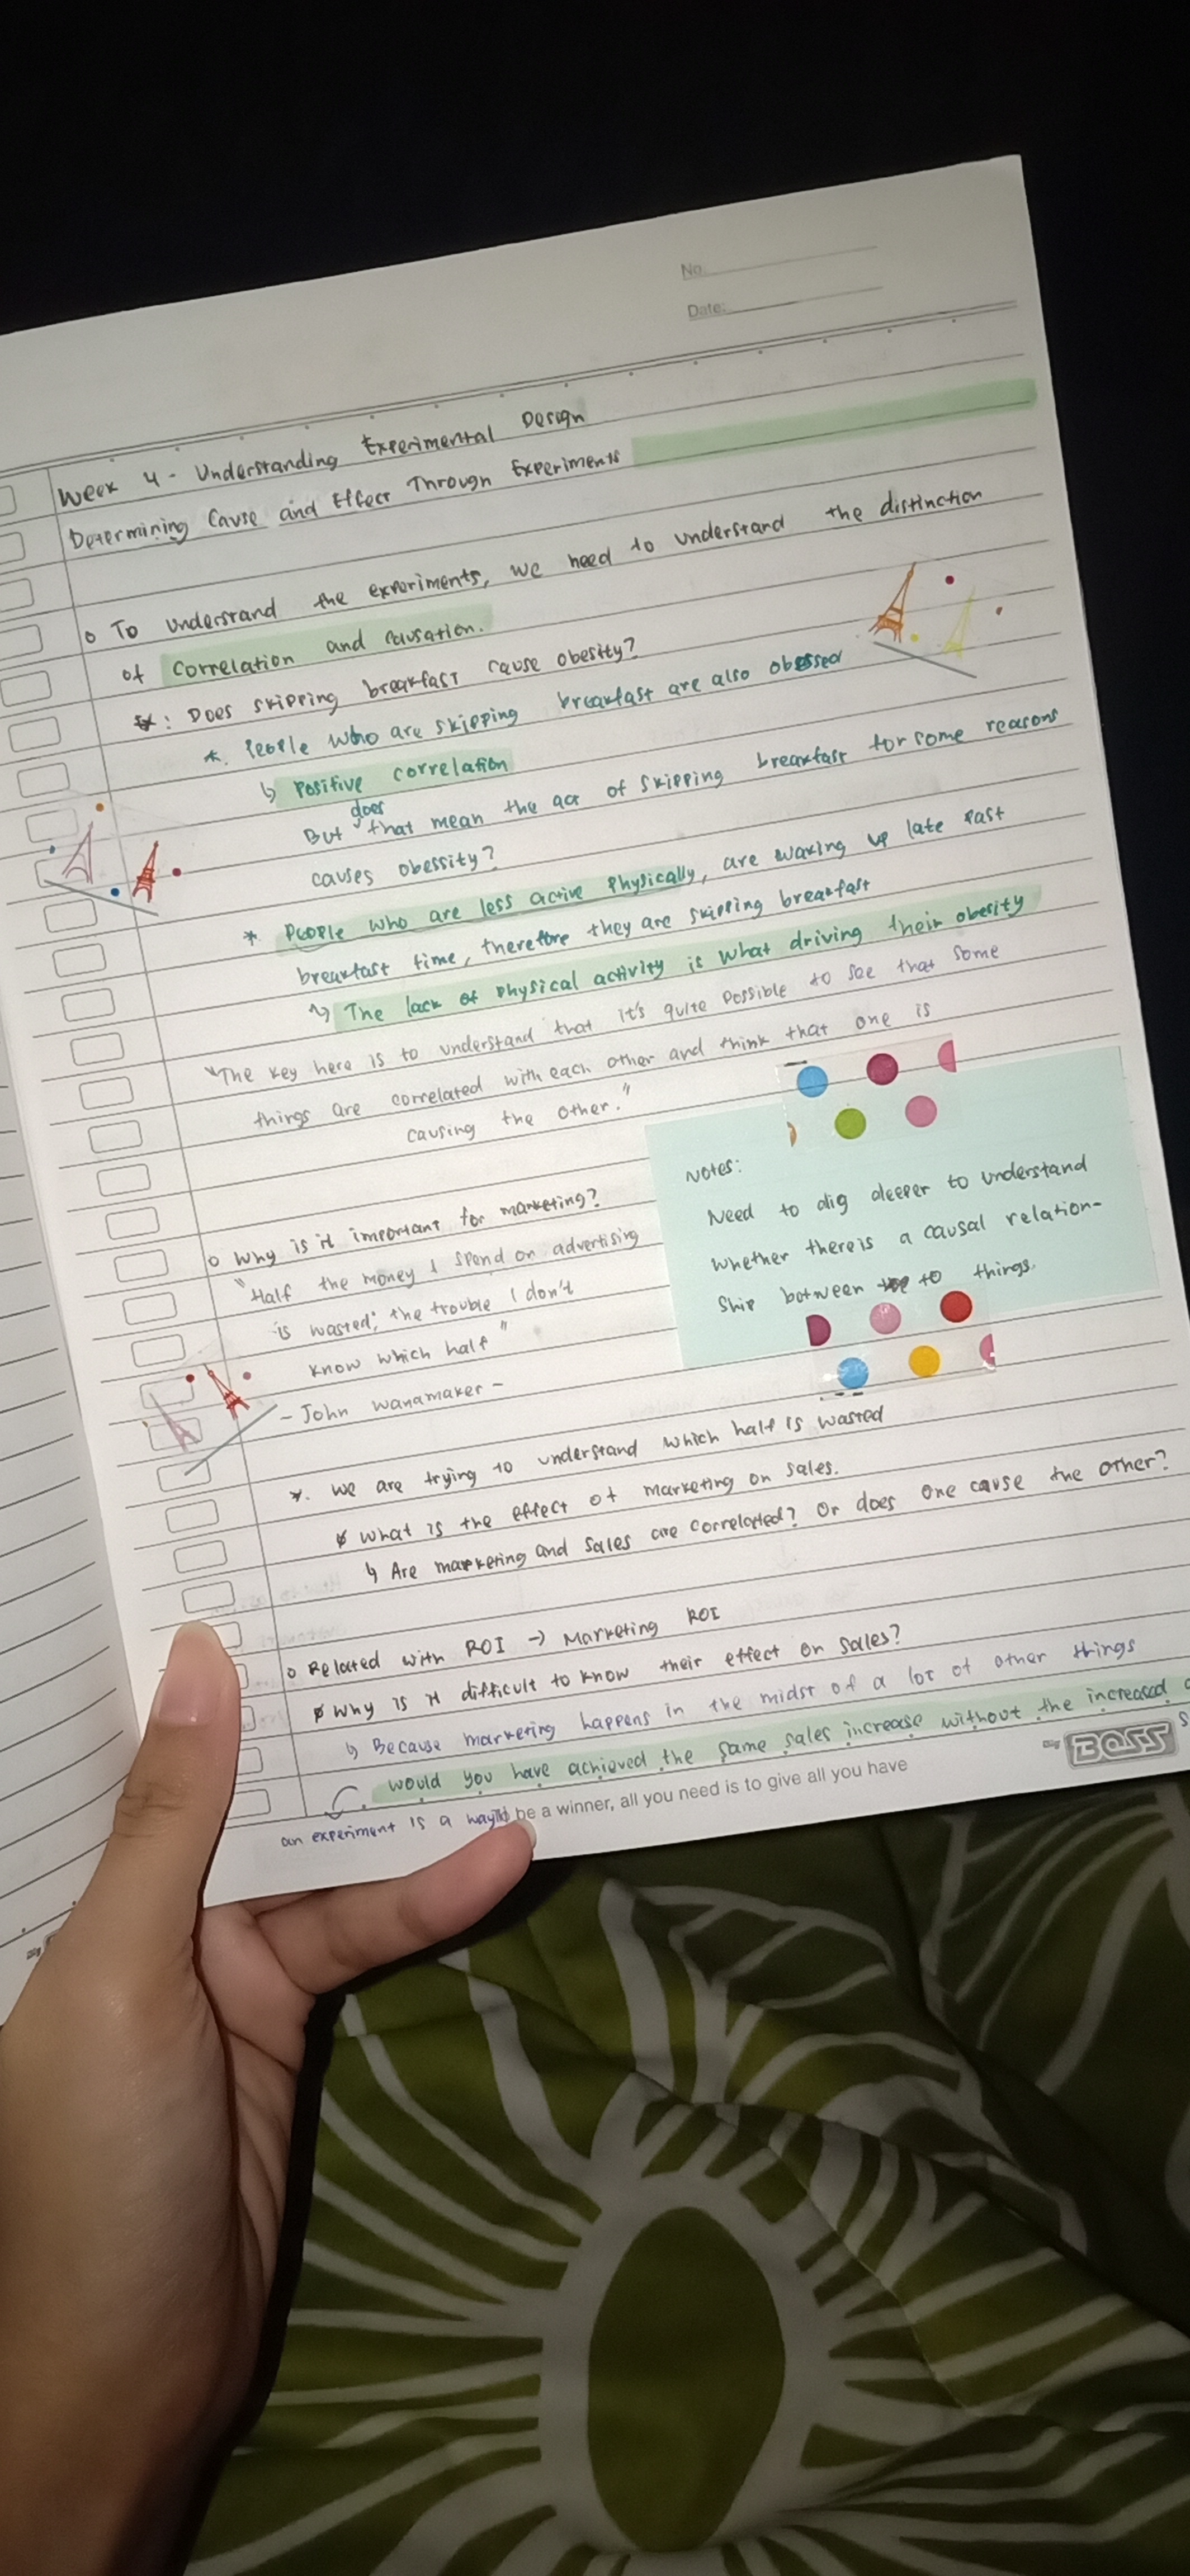 No.
Date:
Week 4 - Understanding Experimental Design
Determining Cause and Effect Through Experiments
o To understand the experiments, we need to understand the distinction
of correlation and causation.
: Does skipping breakfast cause obesity?
*. People who are skipping breakfast are also obessed
↳ Positive correlation
But does that mean the act of skipping breakfast for some reasons
causes obessity?
* People who are less active physically, are waking up late past
breakfast time, therefore they are skipping breakfast
↳ The lack of physical activity is what driving their obesity
"The key here is to understand that it's quite possible to see that some
things are correlated with each other and think that one is
causing the other."
Notes:
Need to dig deeper to understand
whether there is a causal relation-
ship between to things.
o Why is it important for marketing?
"Half the money I spend on advertising
is wasted; the trouble I don't
know which half"
- John wanamaker -
*. We are trying to understand which half is wasted
What is the effect of marketing on sales.
↳ Are marketing and sales are correlated? Or does one cause the other?
o Related with ROI → Marketing ROI
Why is it difficult to know their effect on sales?
↳ Because marketing happens in the midst of a lot of other things
would you have achieved the same sales increase without the increased
an experiment is a way
be a winner, all you need is to give all you have
BOSS